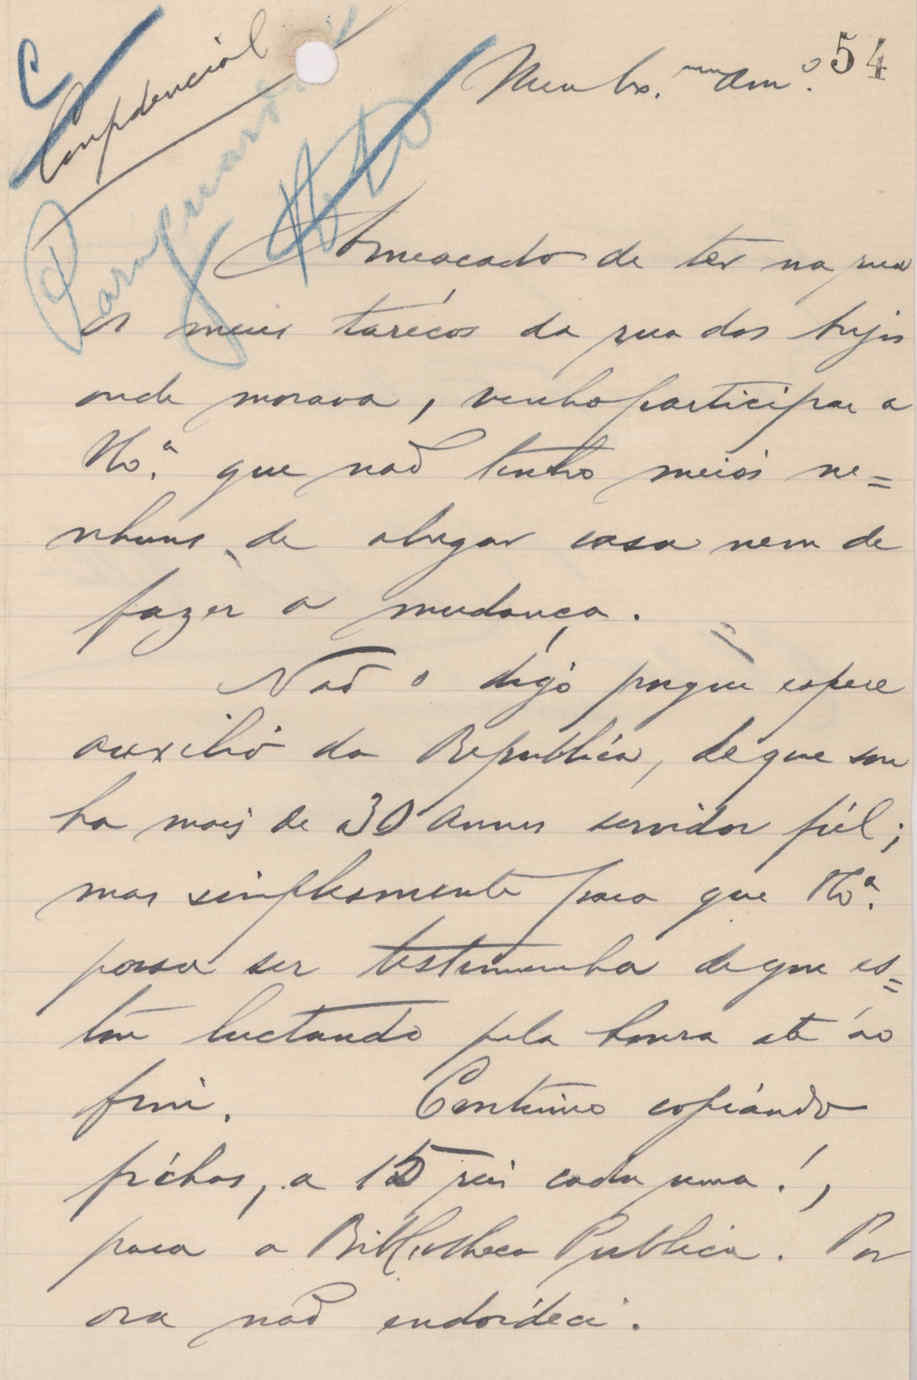 C
Confidencial
54
Meu Ex.mo Am.o
Para guardar
Ameaçado de ter na rua
os meus tarécos da rua dos
onde morava, venho participar a
V. Ex.a que não tenho meios ne=
nhuns de alugar casa nem de
fazer a mudança.
Não o digo porque espere
auxilio da Republica, de que sou
ha mais de 30 annos servidor fiel;
mas simplesmente para que V. Ex.a
possa ser testemunha de que es=
tou luctando pela honra até ao
fim. Continuo copiando
fichas, a 15 reis cada uma!,
para a Bibliotheca Publica. Por
ora não endoideci.